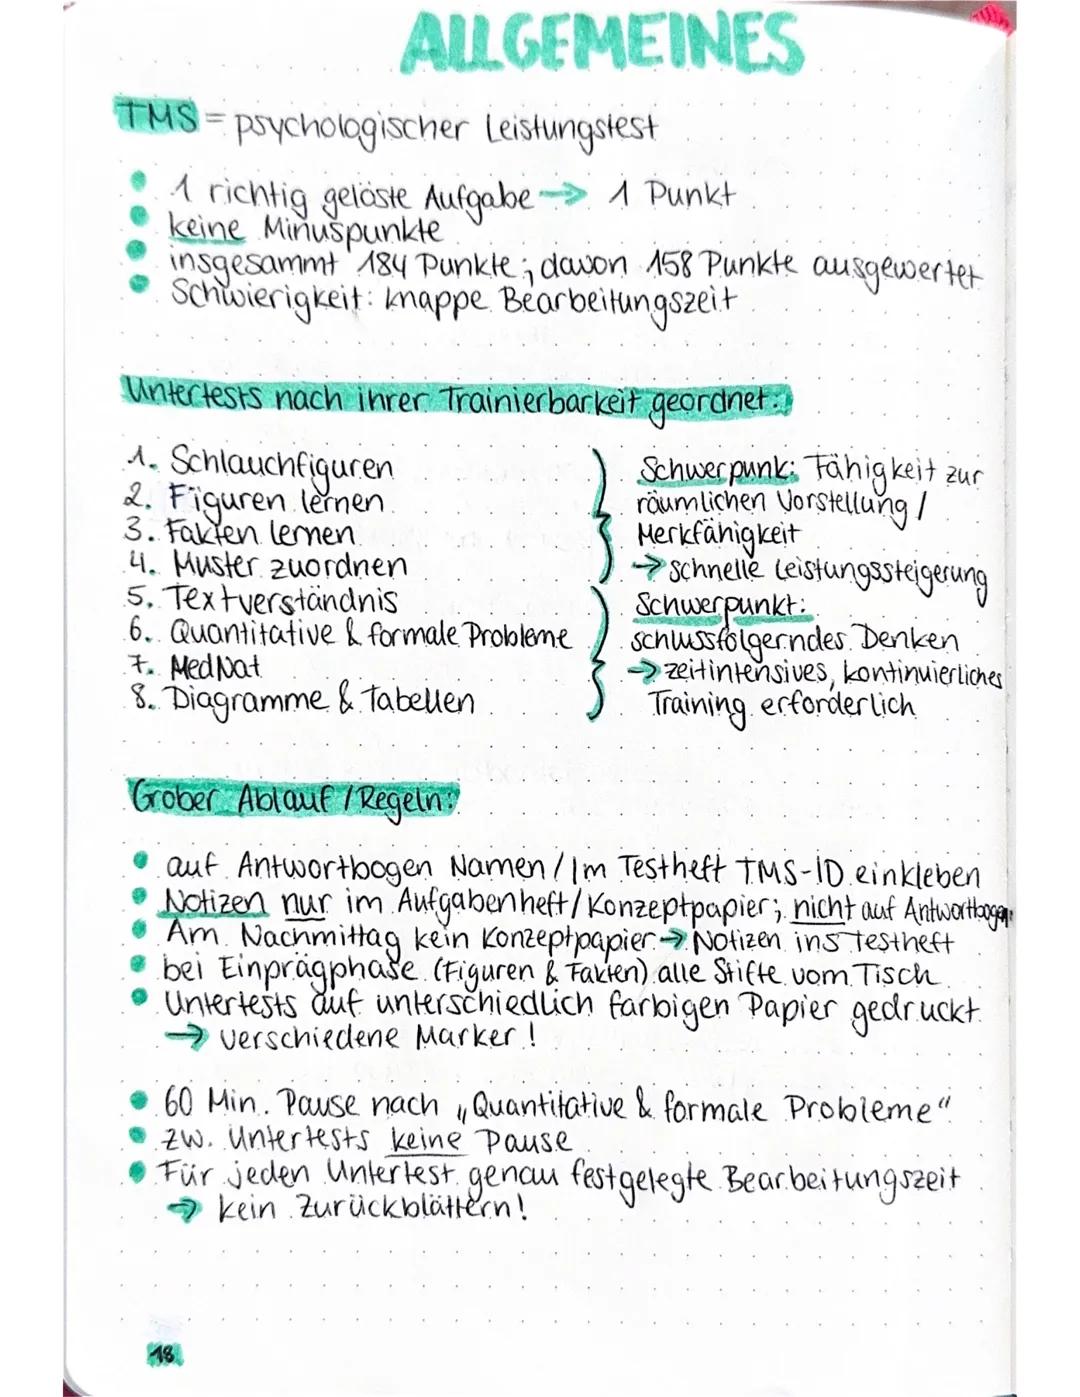 ALLGEMEINES
TMS = psychologischer Leistungstest
1 richtig gelöste Aufgabe → 1 Punkt
keine Minuspunkte
insgesammt 184 Punkte; davon 158 Punkte ausgewertet
Schwierigkeit: knappe Bearbeitungszeit
Untertests nach ihrer Trainierbarkeit geordnet:
1. Schlauchfiguren
2. Figuren lernen
3. Fakten lernen
4. Muster zuordnen
5. Textverständnis
6. Quantitative & formale Probleme
7. MedNat
8. Diagramme & Tabellen
Schwerpunk: Fähigkeit zur
räumlichen Vorstellung /
Merkfähigkeit
→ schnelle Leistungssteigerung
Schwerpunkt:
schlussfolgerndes Denken
→ zeitintensives, kontinuierliches
Training erforderlich
Grober Ablauf / Regeln:
auf Antwortbogen Namen / Im Testheft TMS-ID einkleben
Notizen nur im Aufgabenheft/Konzeptpapier; nicht auf Antwortbogen
Am Nachmittag kein Konzeptpapier → Notizen ins Testheft
bei Einprägphase (Figuren & Fakten) alle Stifte vom Tisch
Untertests auf unterschiedlich farbigen Papier gedruckt
→ verschiedene Marker!
60 Min. Pause nach „Quantitative & formale Probleme"
zw. Untertests keine Pause
Für jeden Untertest genau festgelegte Bearbeitungszeit
→ kein Zurückblättern!
18